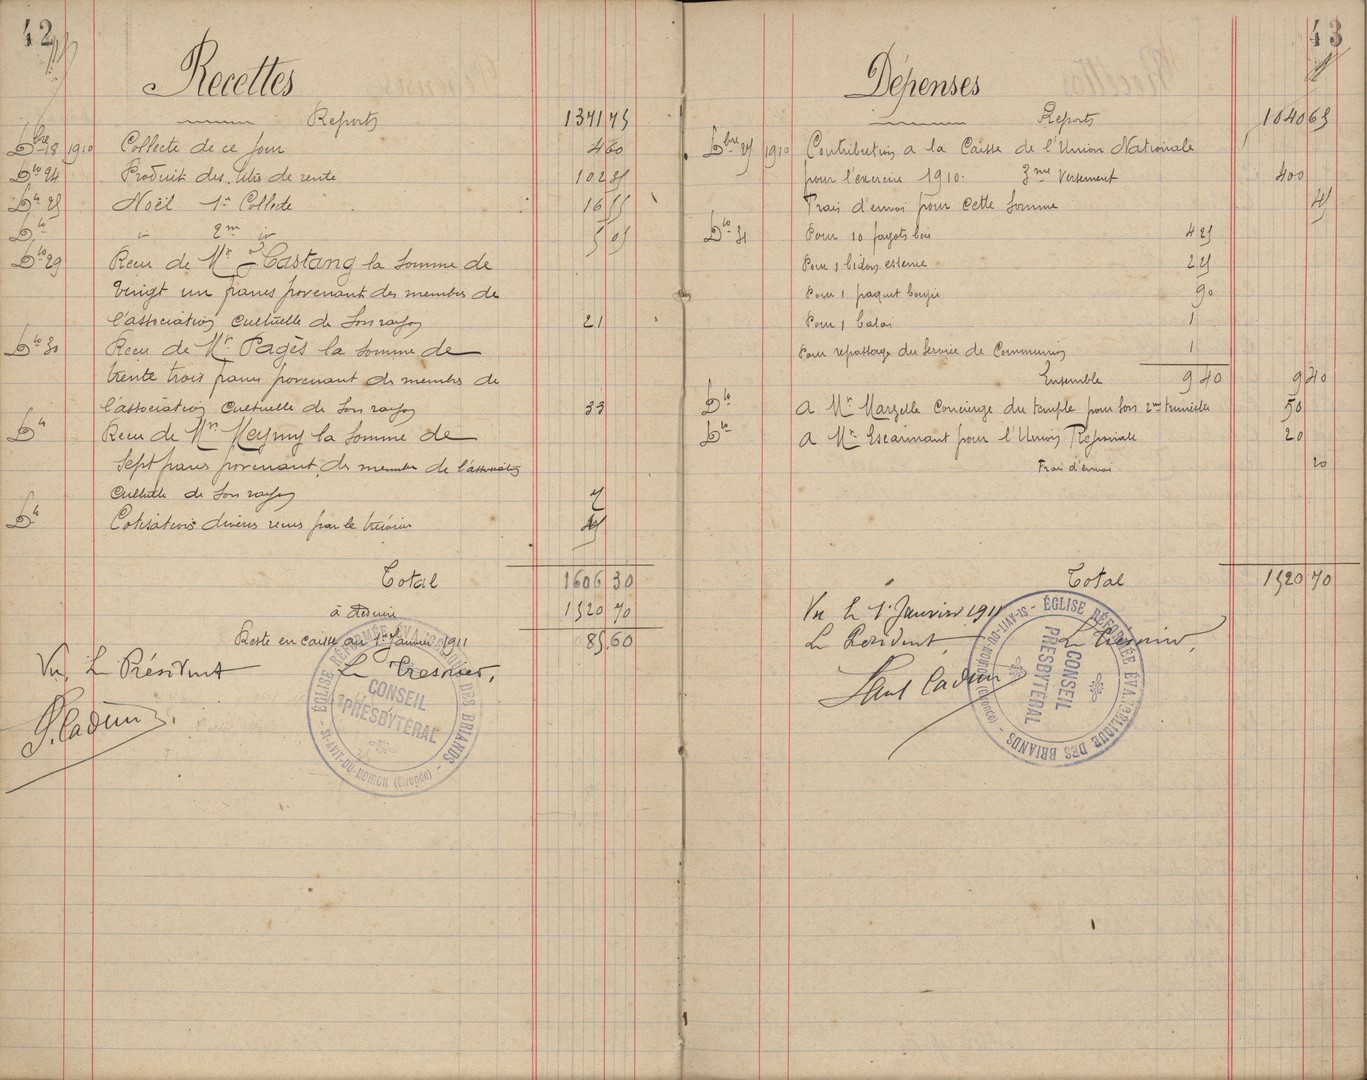 42
Recettes
Reports 1371 75
Dbre 18 1910 Collecte de ce jour 4 60
Dto 24 Produit des titres de rente 102 35
Dto 25 Noël 1re Collecte 16 55
Dto " 2me " 5 05
Dto 29 Recu de Mr Castang la somme de
vingt un francs provenant des membres de
l'association cultuelle de son rayon 21
Dto 30 Recu de Mr Pagès la somme de
trente trois francs provenant des membres de
l'association cultuelle de son rayon 33
Dto Recu de Mr Meymy la somme de
sept francs provenant des membres de l'association
cultuelle de son rayon 7
Dto Cotisations diverses recues par le trésorier 45
Total 1606 30
à déduire 1520 70
Reste en caisse au 1er Janvier 1911 85,60
Vu, Le Président Le Trésorier,
P. Cadier
ÉGLISE RÉFORMÉE ÉVANGÉLIQUE DES BRIANDS - ST-AVIT-DU-MOIRON (Gironde) -
CONSEIL
PRESBYTÉRAL
43
Dépenses
Reports 1040 65
Dbre 25 1910 Contribution a la Caisse de l'Union Nationale
pour l'exercice 1910. 3me Versement 400
Frais d'envoi pour cette somme 45
Dto 31 Pour 10 fagots bois 4 25
Pour 1 bidon essence 2 25
Pour 1 paquet bougie 90
Pour 1 balai 1
Pour repassage du Service de Communion 1
Ensemble 9 40 9 40
Dto A Mr Marzelle Concierge du temple pour son 2me trimestre 50
Dto A Mr Escarmant pour l'Union Régionale 20
Frais d'envoi 20
Total 1520 70
Vu le 1er Janvier 1911
Le Président, Le Trésorier,
Paul Cadier
ÉGLISE RÉFORMÉE ÉVANGÉLIQUE DES BRIANDS - ST-AVIT-DU-MOIRON (Gironde) -
CONSEIL
PRESBYTÉRAL